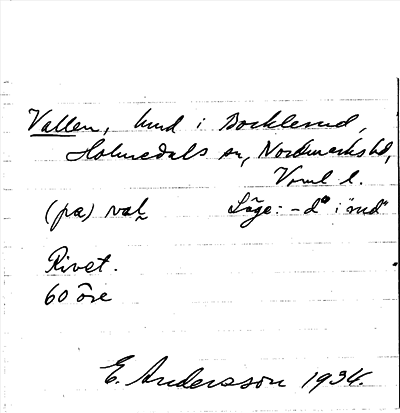 Vallen, lund i Bocklerud,
Holmedals sn, Nordmarks hd,
Vrml l.
(pa) val
Säge: -d i "rud"
Rivet.
60 öre
E. Andersson 1934.